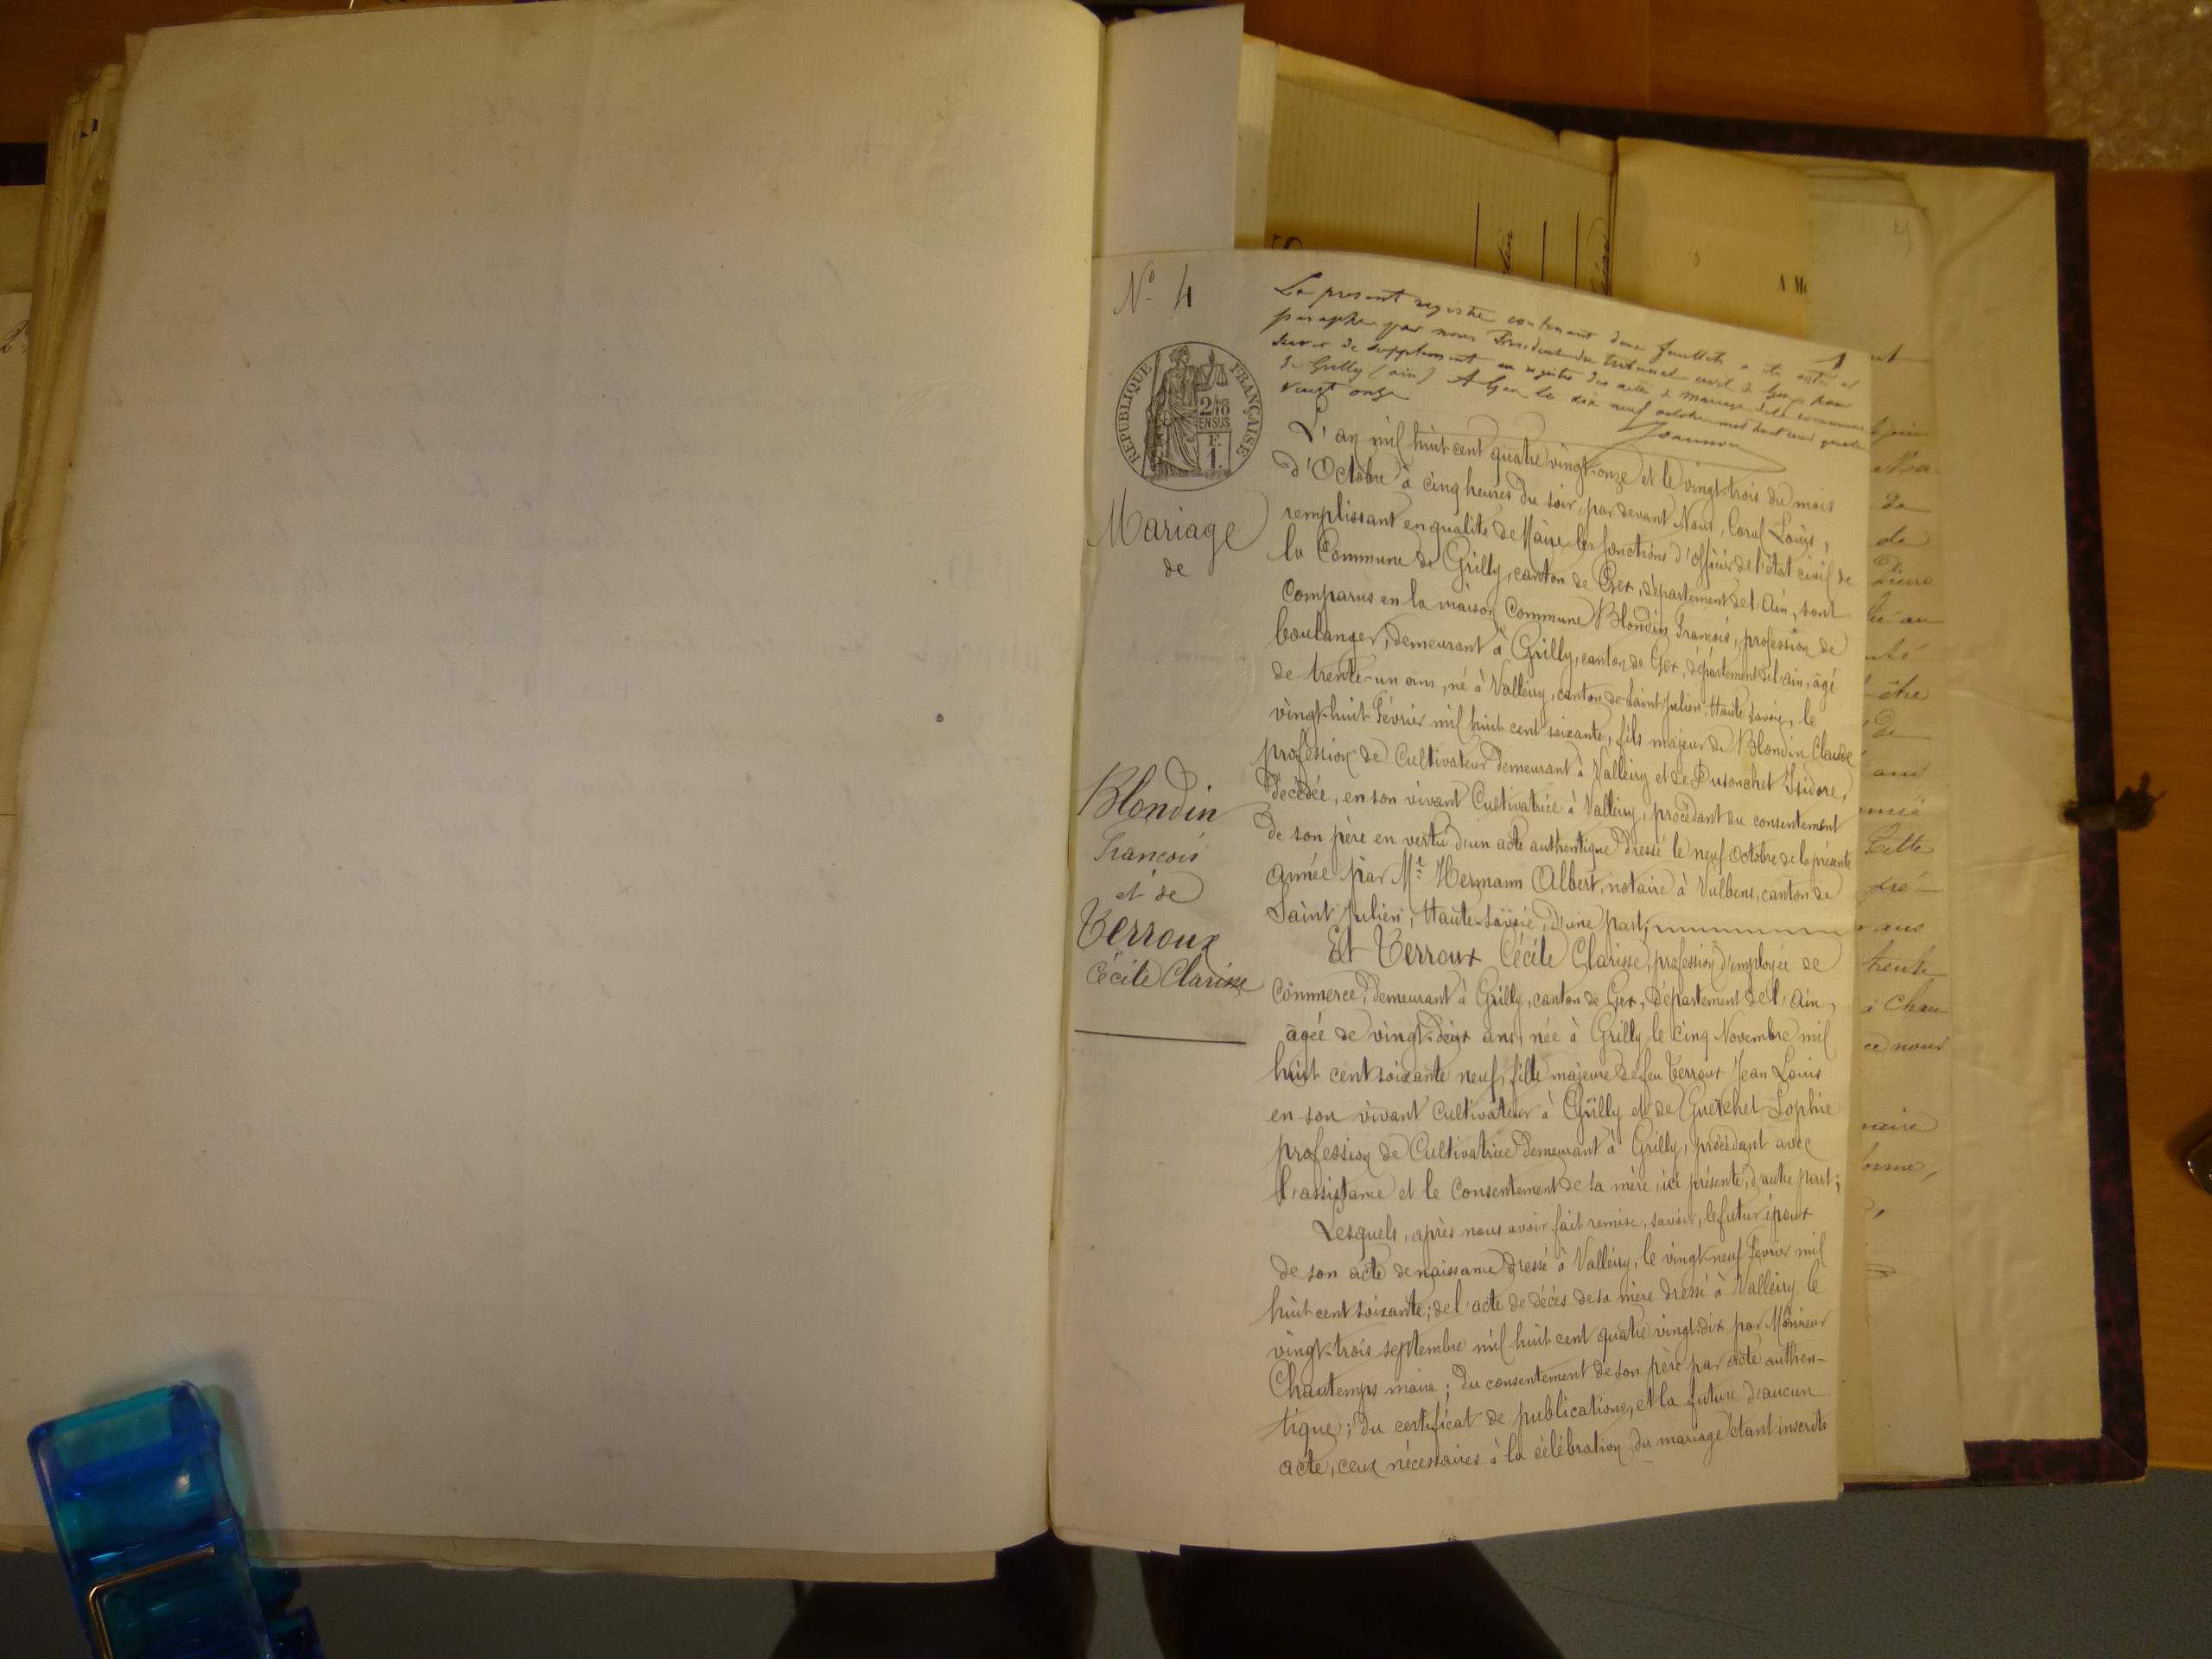 Nº 4
Le present registre contenant deux feuillets a été coté et
paraphé par nous Président du tribunal civil de Gex pour
servir de supplément au registre des actes de mariage de la commune
de Grilly (ain) A Gex le dix neuf octobre mil huit cent quatre
vingt onze
RÉPUBLIQUE FRANÇAISE
2/10
EN SUS
F.
1.
L'an mil huit cent quatre vingt-onze et le vingt-trois du mois
d'Octobre à cinq heures du soir, par devant Nous, Louis,
remplissant en qualité de Maire les fonctions d'officier de l'état civil de
la Commune de Grilly, canton de Gex, département de l'Ain, sont
comparus en la maison Commune Blondin François, profession de
boulanger, demeurant à Grilly, canton de Gex, département de l'ain, âgé
de trente-un ans, né à Valleiry, canton de Saint-Julien, Haute Savoie, le
vingt-huit Février mil huit cent soixante, fils majeur de Blondin Claude
profession de Cultivateur demeurant à Valleiry et de Dusonchet Isidore,
décédée, en son vivant Cultivatrice à Valleiry, procédant du consentement
de son père en vertu d'un acte authentique dressé le neuf Octobre de la présente
année par Me Hermann Albert, notaire à Vulbens, canton de
Saint Julien, Haute-Savoie, d'une part,
Et Terroux Cécile Clarisse, profession d'employée de
Commerce, demeurant à Grilly, canton de Gex, Département de l'Ain,
âgée de vingt-deux ans, née à Grilly le cinq Novembre mil
huit cent soixante neuf, fille majeure de feu Terroux Jean Louis
en son vivant Cultivateur à Grilly et de Guerchet Sophie
profession de Cultivatrice demeurant à Grilly, procédant avec
l'assistance et le Consentement de sa mère, ici présente, d'autre part;
Lesquels, après nous avoir fait remise, savoir, le futur époux
de son acte de naissance dressé à Valleiry, le vingt-neuf Février mil
huit cent soixante; de l'acte de décès de sa mère dressé à Valleiry le
vingt-trois septembre mil huit cent quatre vingt-dix par Monsieur
Chautemps maire; du consentement de son père par acte authen-
tique; du certificat de publications, et la future d'aucun
acte, ceux nécessaires à la célébration du mariage étant inscrits
Mariage
de
Blondin
François
et de
Terroux
Cécile Clarisse
de
de
Pierre
être
de
Cette
pré-
ans
trente
à Chau
ce nous